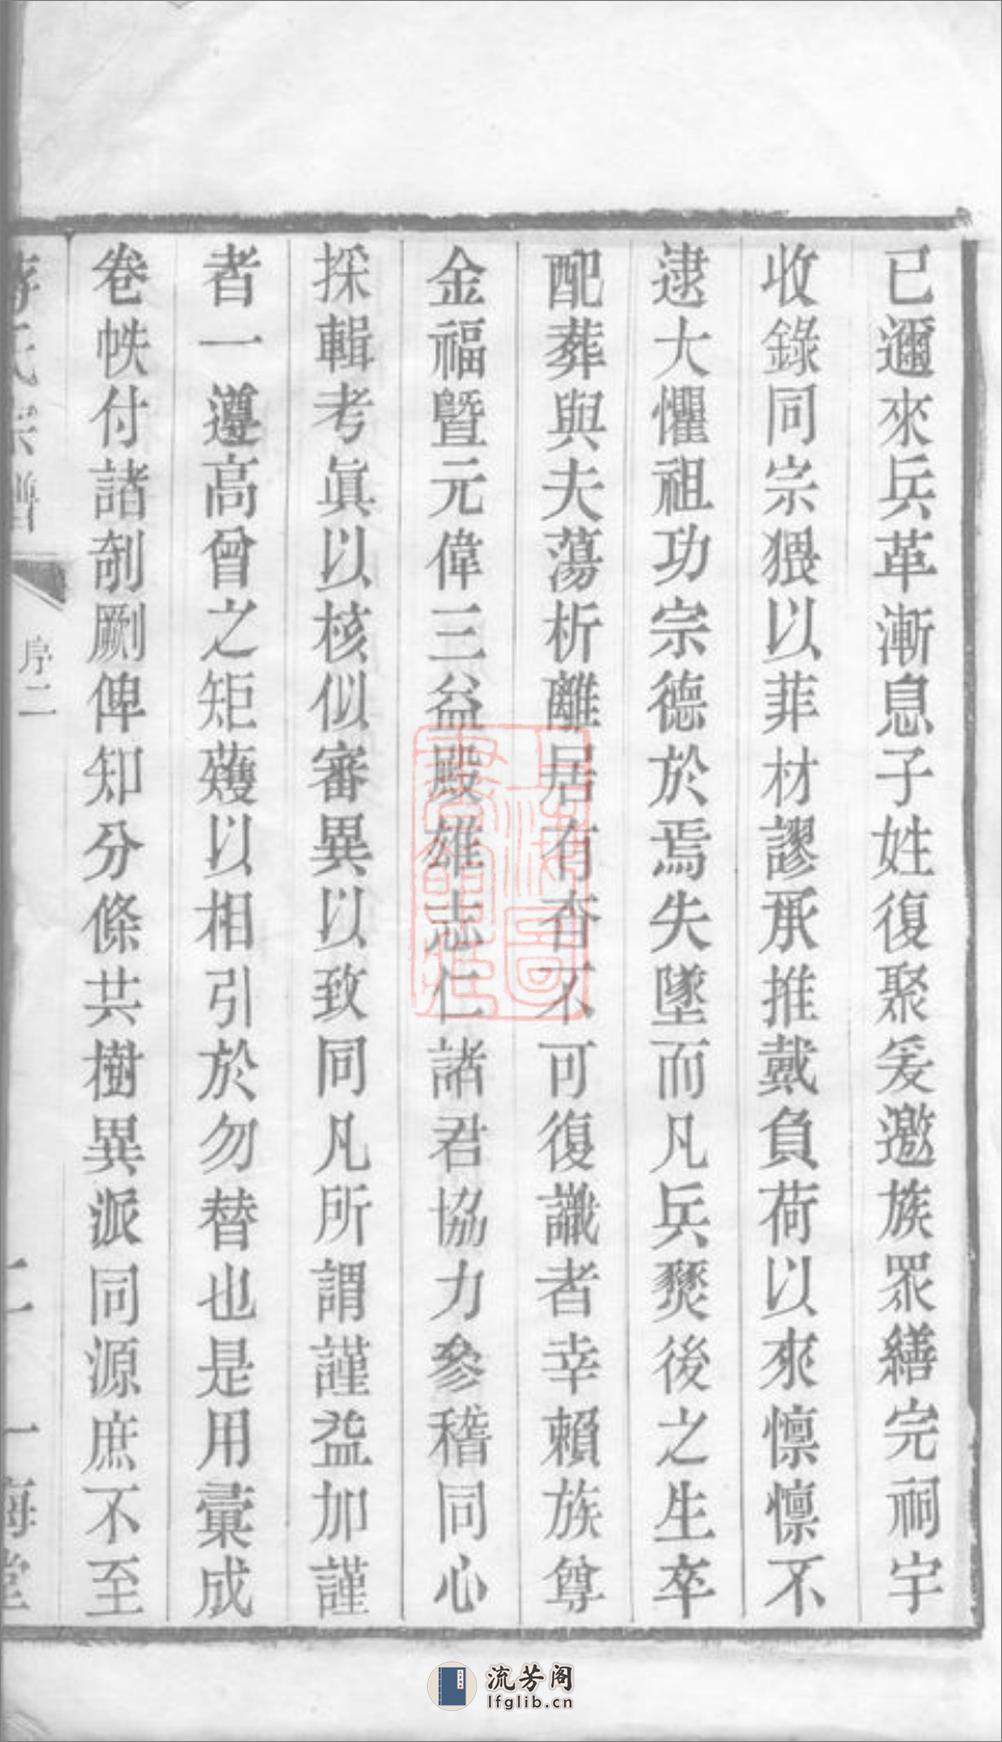 已邇來兵革漸息子姓復聚爰邀族眾繕完祠宇
收錄同宗猥以菲材謬承推戴負荷以來懍懍不
逮大懼祖功宗德於焉失墜而凡兵燹後之生卒
配葬與夫蕩析離居有杳不可復識者幸賴族尊
金福暨元偉三益殿雄志仁諸君協力參稽同心
採輯考眞以核似審異以致同凡所謂謹益加謹
者一遵高曾之矩矱以相引於勿替也是用彙成
卷帙付諸剞劂俾知分條共樹異派同源庶不至
氏宗譜
序二
二
一梅堂
上海圖書館藏
流芳阁
lfglib.cn